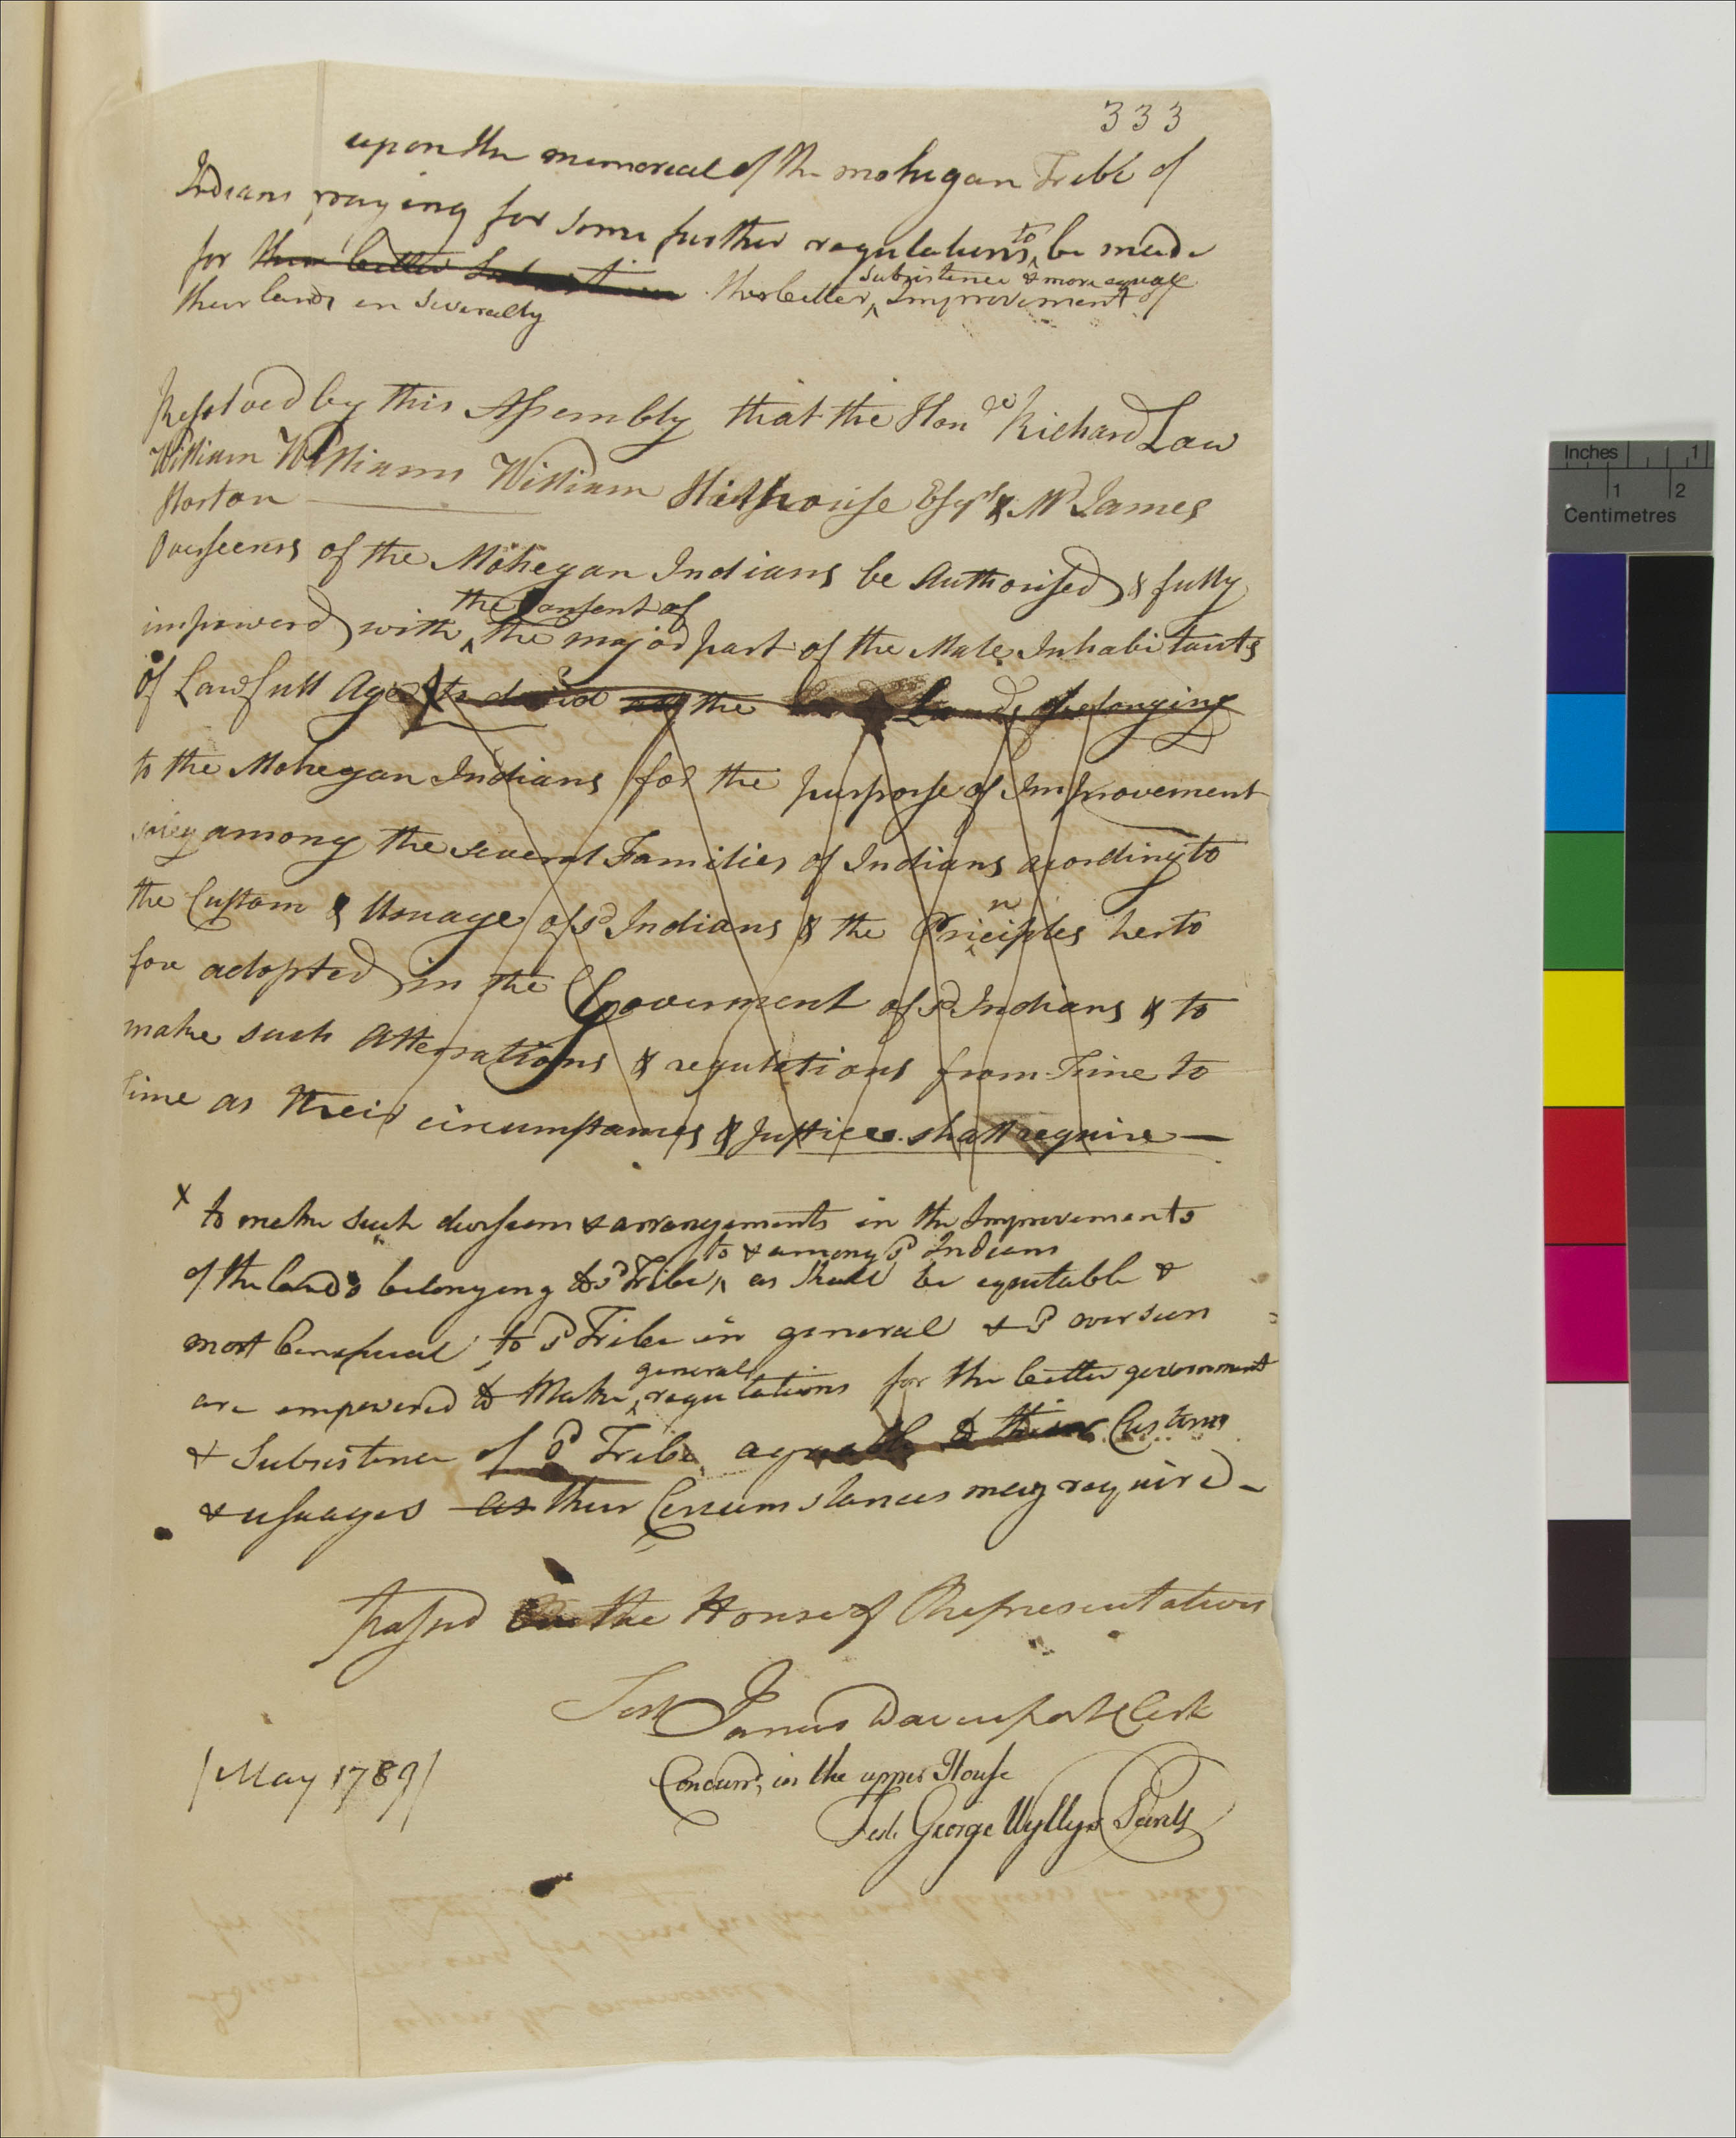 333
upon the memorial of the mohegan Tribe of
Indians praying for some further regulations to be made
for their better Subsistence their better subsistence & more equal Improvement of
their lands in severalty
Resolved by this Assembly that the Honle Richard Law
William Williams William Hillhouse Esqrs & Mr James
Horton
Overseerss of the Mohegan Indians be Authorised & fully
impowerd with the Consent of the major part of the Male Inhabitants
of Lawfull Age to devid the Lands belonging
to the Mohegan Indians for the purporse of Improvement
only among the several Families of Indians acording to
the Custom & Usuage of sd Indians & the Principles herto
fore adopted in the Goverment of sd Indians & to
make such Alterrations & regulations from Time to
Time as their circumstances & Justice shall require —
x to make such divisions & arrangements in the Improvements
of the lands belonging to sd Tribe, to & among sd Indians as shall be equitable &
most beneficial to sd Tribe in general & sd overseers
are empowered to Make general regulations for the better government
& Subsistence of sd Tribe agreable to their Customs
& usuages as their Circumstances may require -
Passed in the House of Representatives
Test James Davenport Clerk
[May 1789]
Concurrd, in the upper House
Test. George Wyllys Secrety
Inches 1
1 2
Centimetres